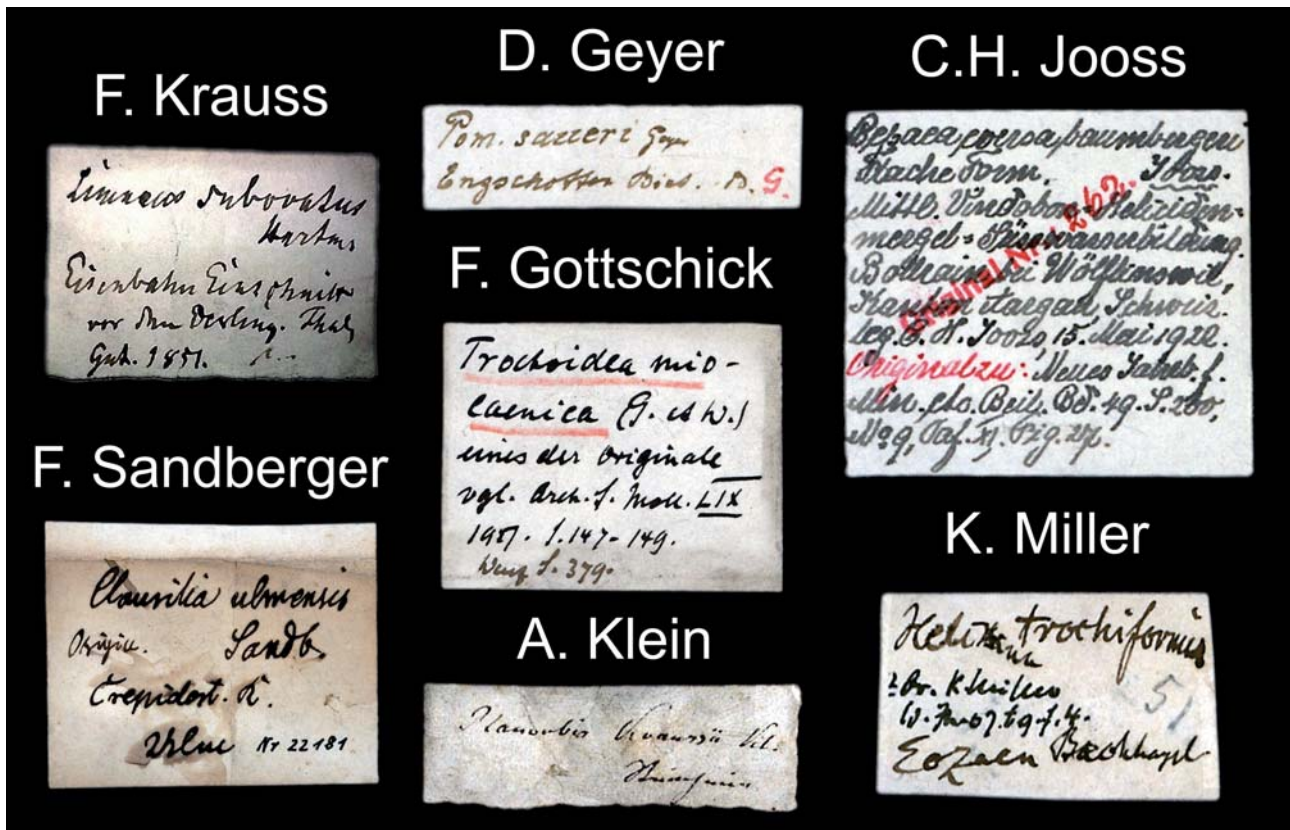 F. Krauss
Limnaeus subovatus
Hartm.
Eisenbahn Einschnitt
vor dem Oerling. Thal,
Gut. 1851.
F. Sandberger
Clausilia ulmensis
Origin. Sandb.
Crepidost. K.
Ulm Nr 22181
D. Geyer
Pom. saxeri Geyer
D. G.
F. Gottschick
Trochoidea mio-
caenica (G. et W.)
eines der Originale
vgl. Arch. f. Moll. LIX
S. 147-149.
S. 379.
A. Klein
Planorbis Kraussii Kl.
C.H. Jooss
Flache Form. Jooss.
Mittl. Vindobon = Heliciden-
mergel = Süsswasserbildung.
Wölflinswil,
Kanton Aargau, Schweiz.
leg. C. H. Jooss, 15. Mai 1922.
Original zu: Neues Jahrb. f.
Min. etc. Beil. Bd. 49. S. 200,
No 9, Taf. XI. Fig. 27.
Original Nr. 262.
K. Miller
Helix trochiformis
51
Eozaen